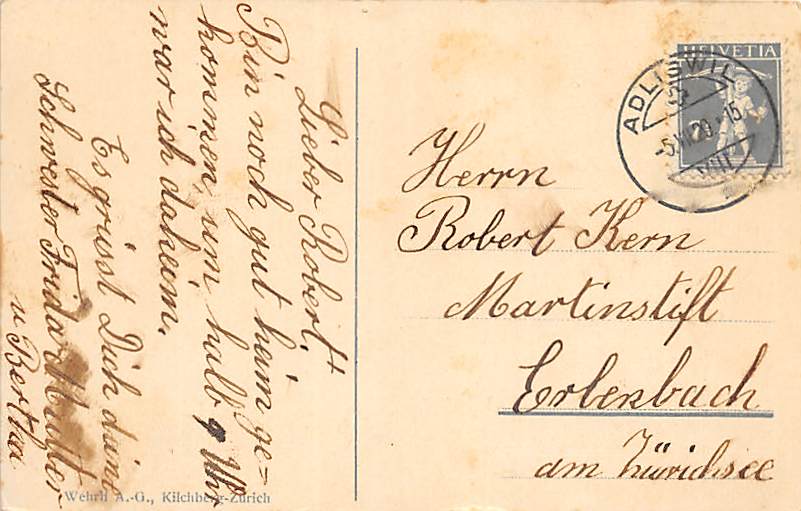 Lieber Robert!
Bin noch gut heim ge=
kommen, um halb 9 Uhr
war ich daheim.
Es grüsst Dich deine
Schwester Frida Mutter
u Bertha
HELVETIA
ADLISWIL
-5.VI.20.-15
VIII
Herrn
Robert Kern
Martinstift
Erlenbach
am Zürichsee
Wehrli A.-G., Kilchberg-Zürich